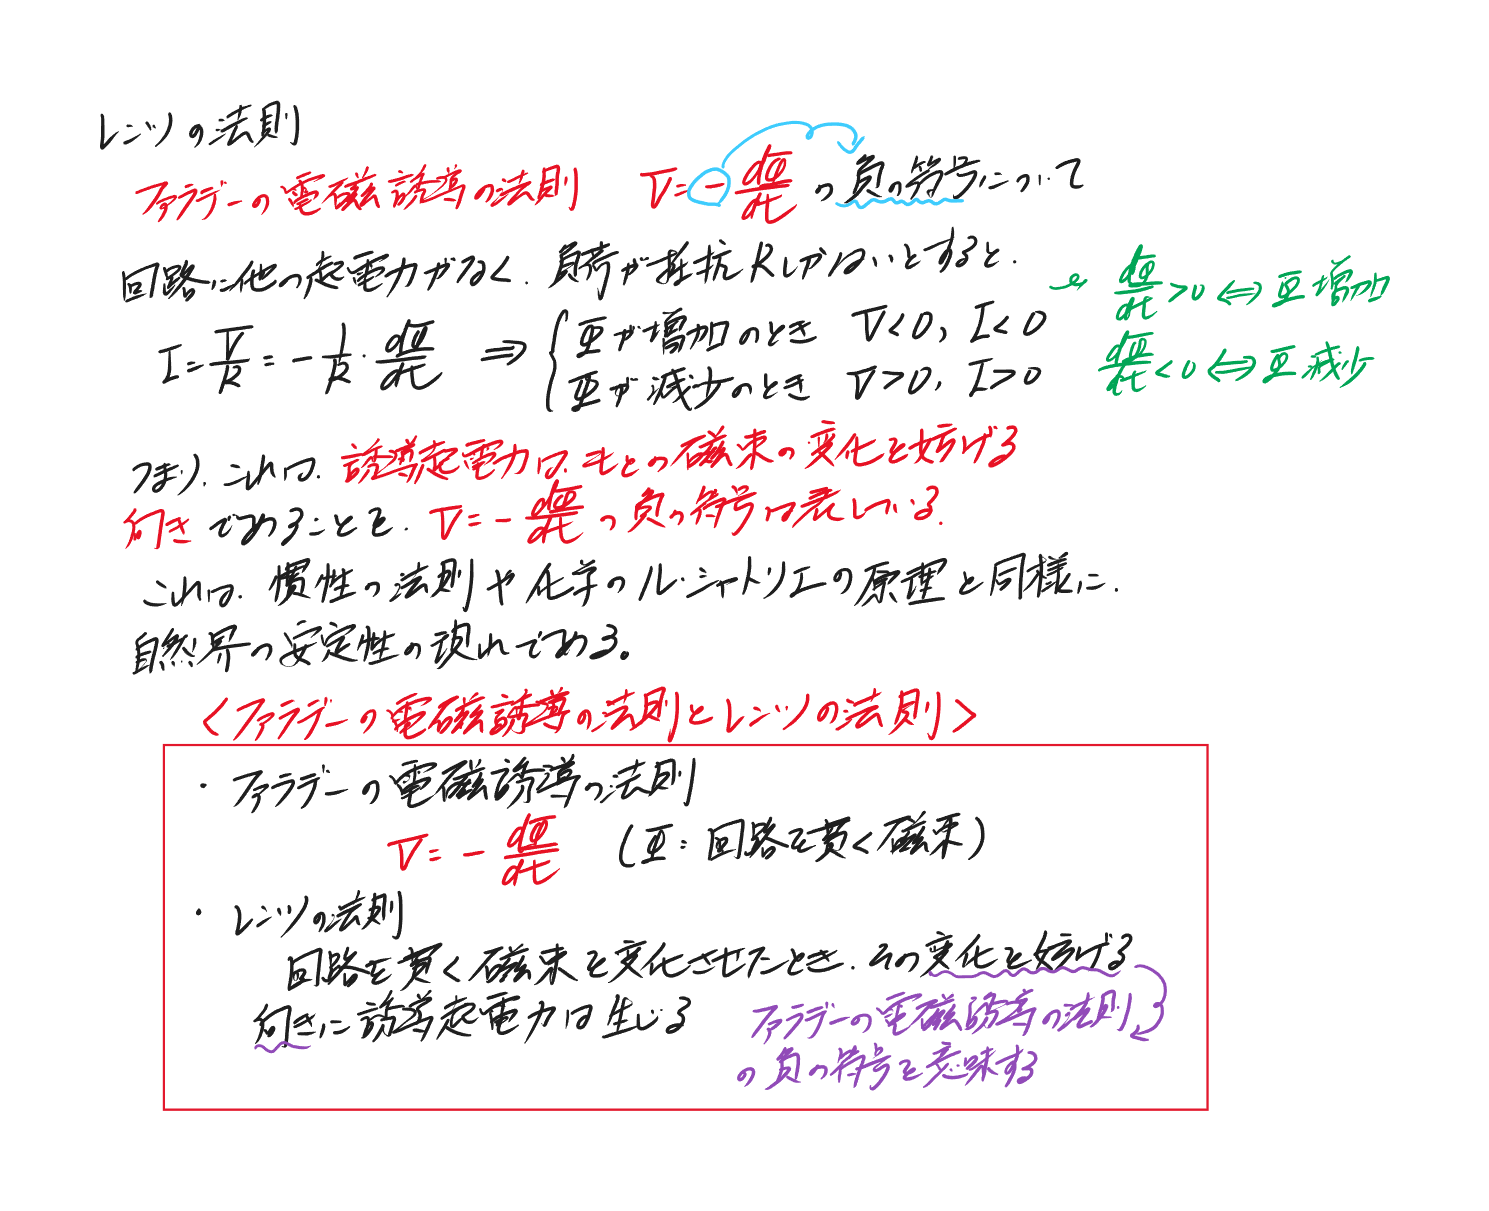 レンツの法則
ファラデーの電磁誘導の法則 V = -dΦ/dt の負の符号について
回路に他の起電力がなく、負荷が抵抗Rしかないとすると、
I = V/R = -1/R・dΦ/dt ⇒ { Φが増加のとき V<0, I<0
Φが減少のとき V>0, I>0
dΦ/dt>0 ⇔ Φ増加
dΦ/dt<0 ⇔ Φ減少
つまり、これは、誘導起電力は、もとの磁束の変化を妨げる
向きであることを、V = -dΦ/dt の負の符号は表している。
これは、慣性の法則や化学のル・シャトリエの原理と同様に、
自然界の安定性の現れである。
<ファラデーの電磁誘導の法則とレンツの法則>
・ファラデーの電磁誘導の法則
V = -dΦ/dt (Φ:回路を貫く磁束)
・レンツの法則
回路を貫く磁束を変化させたとき、その変化を妨げる
向きに誘導起電力は生じる
ファラデーの電磁誘導の法則
の負の符号を意味する